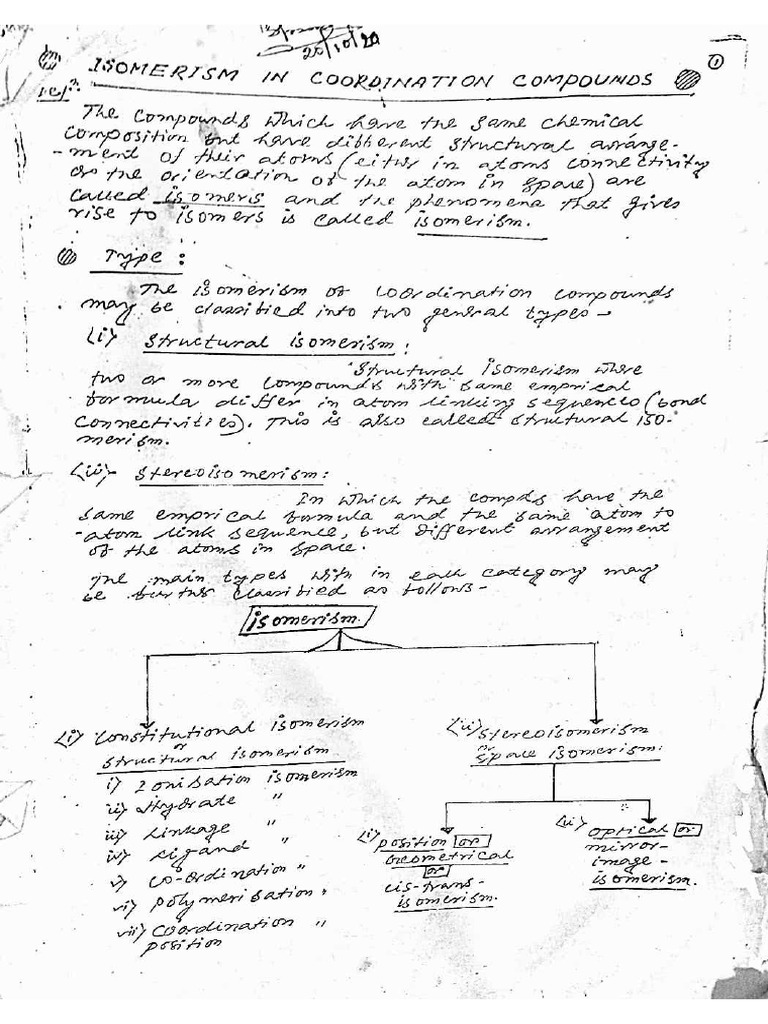 20/10/20
①
ISOMERISM IN COORDINATION COMPOUNDS
The compounds which have the same chemical
composition but have different structural arrange-
-ment of their atoms (either in atoms connectivity
or the orientation of the atom in space) are
called isomeris and the phenomena that gives
rise to isomers is called isomerism.
Type :
The isomerism of coordination compounds
may be classified into two general types -
(i) Structural isomerism :
Structural isomerism where
two or more compounds with same emprical
formula differ in atom linking sequences (bond
connectivities). This is also called structural iso-
merism.
(ii) Stereoisomerism :
In which the compds have the
same emprical formula and the same atom to
-atom link sequence, but different arrangement
of the atoms in space.
The main types with in each category may
be further classified as follows -
isomerism.
(i) Constitutional isomerism
or
structural isomerism.
i) Ionisation isomerism
ii) Hydrate "
iii) Linkage "
iv) Ligand "
v) Co-ordination "
vi) Polymerisation "
vii) Coordination "
position
(ii) Stereoisomerism
or
space isomerism.
(i) position or
Geometrical
or
cis-trans-
isomerism.
(ii) optical or
mirror-
image-
isomerism.